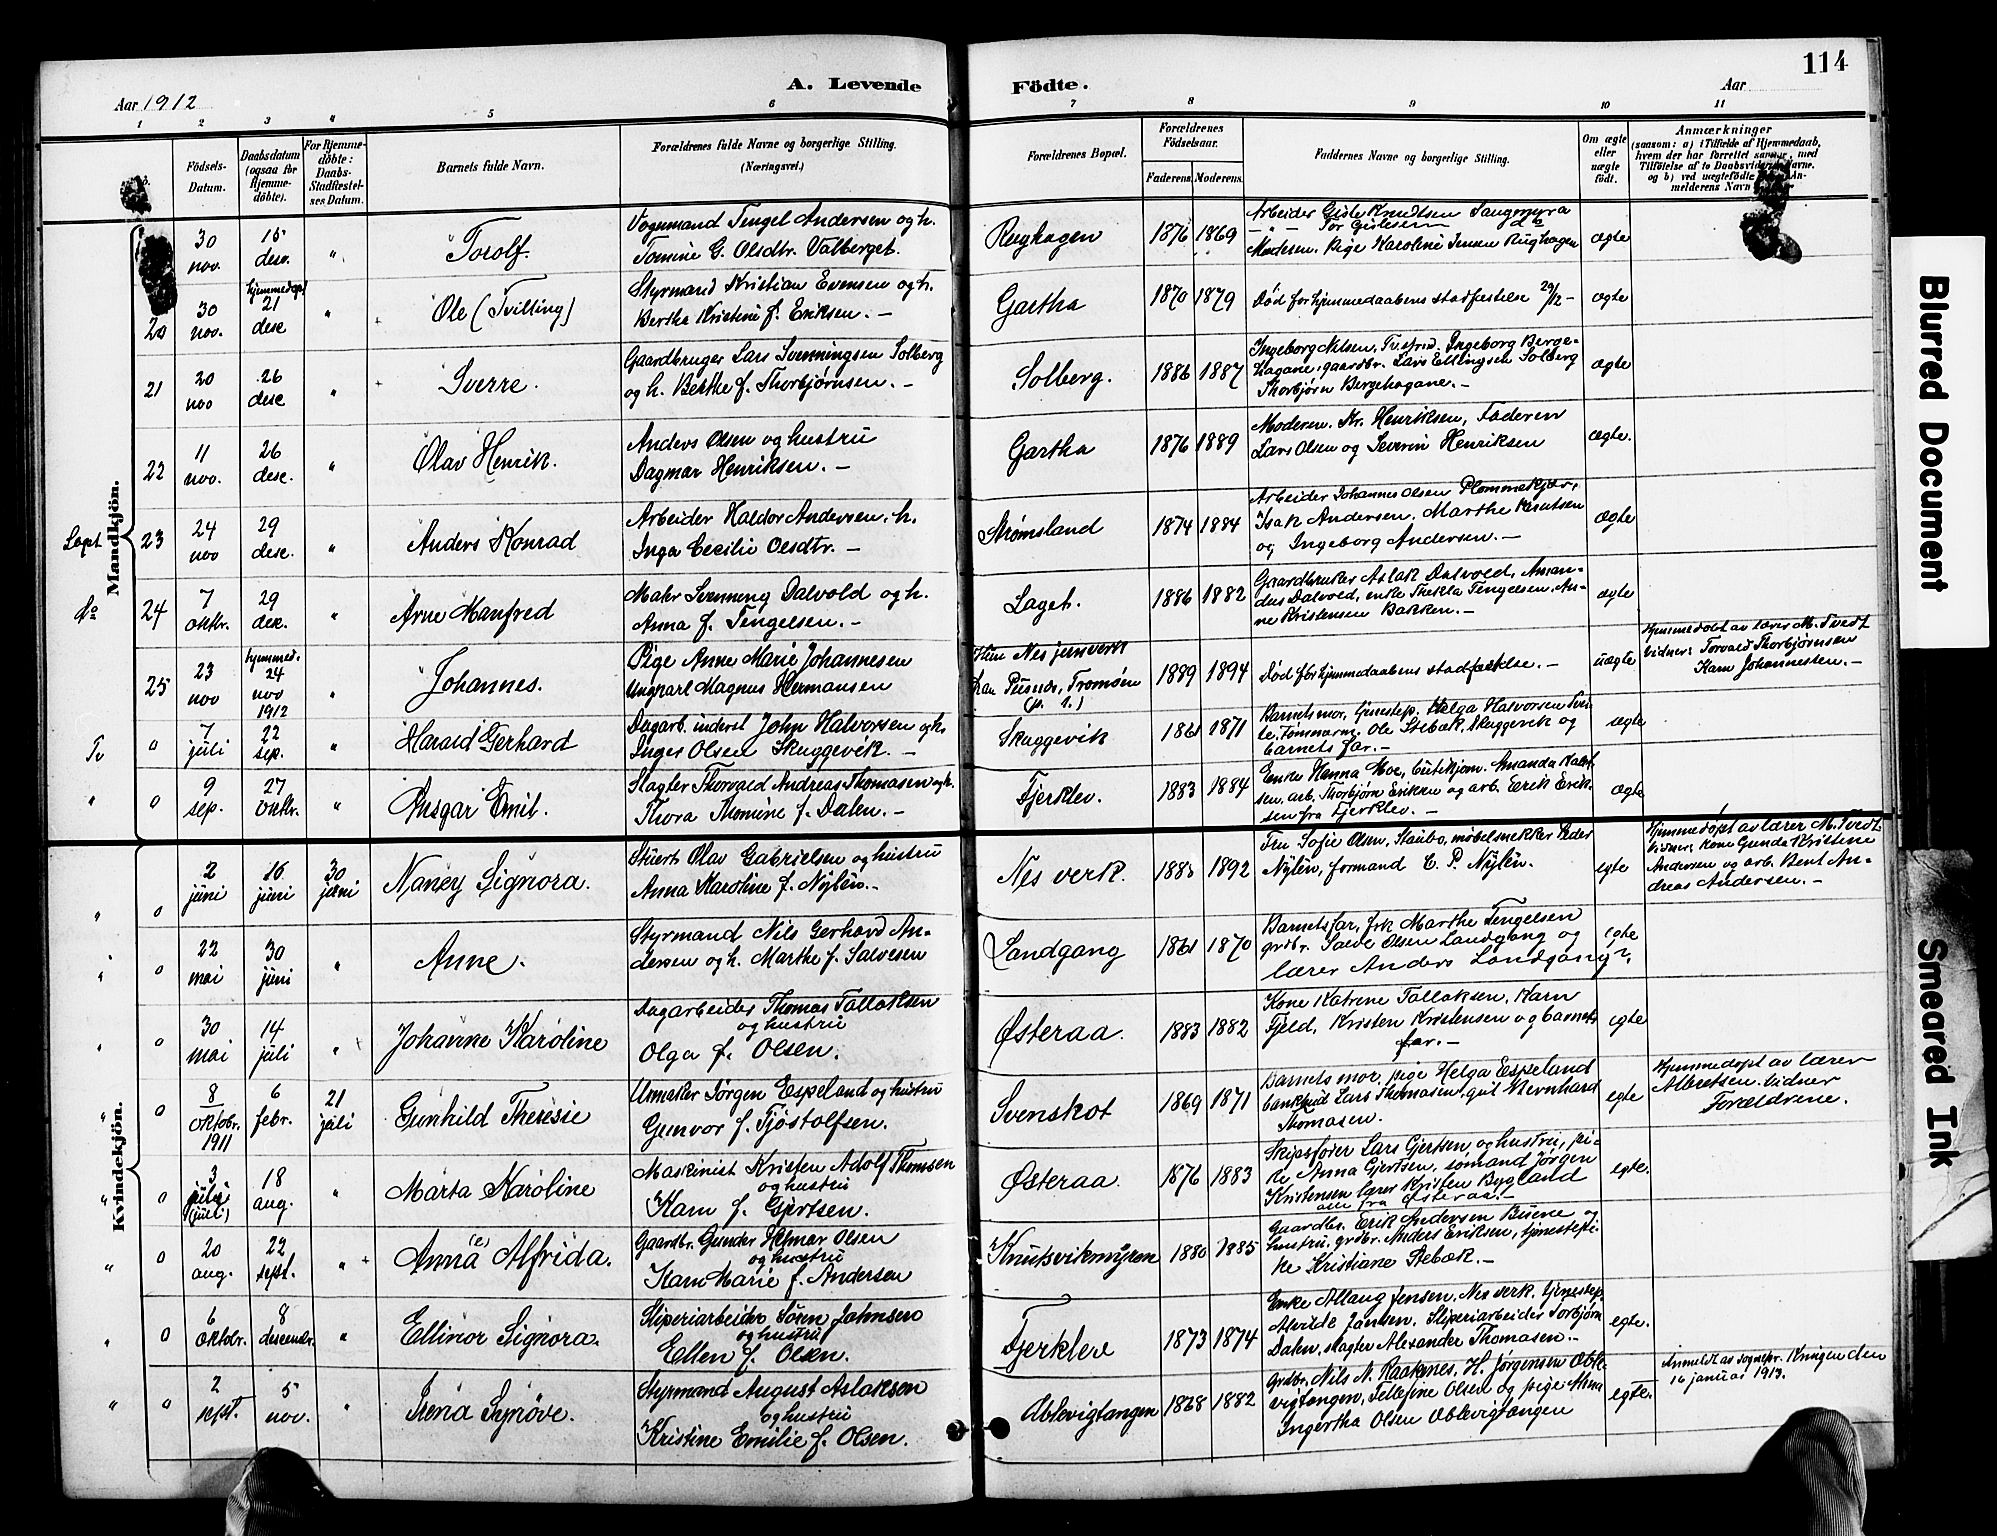 114
Aar 1912
A. Levende Födte.
Aar
1 2 3 4 5 6 7 8 9 10 11
Födsels-Datum.
Daabsdatum (ogsaa for Hjemme-döbte).
For Hjemme-döbte: Daabs-Stadfæstel-ses Datum.
Barnets fulde Navn.
Forældrenes fulde Navne og borgerlige Stilling.
(Næringsvei.)
Forældrenes Bopæl.
Forældrenes Födselsaar.
Faderens. Moderens.
Faddernes Navne og borgerlige Stilling.
Om ægte eller uægte födt.
Anmærkninger
(saasom: a) i Tilfælde af Hjemmedaab,
hvem der har forrettet samme, med
Tilföielse af to Daabsvidners Navne.
og b) ved uægtefödte: An-
melderens Navn
Mandkjön.
30 nov. 15 des. " Torolf.
Vognmand Tengel Andersen og h.
Tomine G. Olsdtr. Valberget.
Rughagen 1876 1869
Arbeider Gisle Knudtsen Saugmyra
— " — Tor Gislesen do
Moderen. Pige Karoline Jensen Rughagen
ægte
20 30 nov. hjemmedøpt 21 dese " Ole (Tvilling)
Styrmand Kristian Evensen og h.
Bertha Kristine f. Eriksen. —
Gartha 1870 1879
Død før hjemmedaabens stadfæstelse 29/12 —
ægte
21 20 nov 26 dese " Sverre.
Gaardbruger Lars Svenningsen Solberg
og h. Berthe f. Thorbjørnsen. —
Solberg. 1886 1887
Ingeborg Nilsen, Tv.strød. Ingeborg Berge-
hagane, gaardbr. Lars Ellingsen Solberg
Thorbjørn Bergehagane. —
ægte
22 11 nov. 26 dese. " Olav Henrik.
Anders Olsen og hustru
Dagmar Henriksen. —
Gartha 1876 1889
Moderen. Kr. Henriksen, Faderen
Lars Olsen og Severin Henriksen
ægte.
Lagt 23 24 nov 29 dese. " Anders Konrad
Arbeider Haldor Andersen. h.
Inga Cecilie Olsdtr. —
Strømsland 1874 1884
Arbeider Johannes Olsen Plommekjær,
Isak Andersen, Marthe Knutsen
og Ingeborg Andersen. —
ægte
do 24 7 oktbr. 29 des. " Arne Manfred
Maler Svenning Dalvold og h.
Anna f. Tengelsen. —
Laget. 1886 1882
Gaardbruker Aslak Dalvold, Aman-
dus Dalvold, enke Thekla Tengelsen, An-
ne Kristensen Bakken. —
ægte
25 23 nov hjemmed. 24 nov 1912 " Johannes.
Pige Anne Marie Johannesen
Ungkarl Magnus Hermansen
Hun Nes jernverk
han Pusnes, Tromøen
(p. t.)
1889 1894
Død før hjemmedaabens stadfæstelse. —
uægte
Hjemmedøbt av lærer M. Tvedt
vidner: Torvald Thorbjørnsen
Karn Johannesen. —
Tv 0 7 juli 22 sep. " Harald Gerhard
Dagarb. inderst John Halvorsen og h.
Inger Olsen Skuggevik. —
Skuggevik 1861 1871
Barnets mor, tjenestep. Helga Halvorsen
Ole Stebæk, Skuggevik og
barnets far. —
ægte
" 0 9 sep. 27 oktbr. " Ansgar Emil.
Slagter Thorvald Andreas Thomasen og h.
Thora Thomine f. Dalen. —
Fjerklev. 1883 1884
Enke Hanna Moe, Amanda
sen, arb. Thorbjørn Eriksen og arb. Eerik Erik-
sen fra Fjerklev. —
ægte
Kvindekjön.
" 0 2 juni 16 juni 30 juni Nancy Signora.
Stuert Olav Gabrielsen og hustru
Anna Karoline f. Nylén. —
Nes verk. 1885 1892
Fru Sofie Olsen, Staubo, møbelsnekker Peder
Nylén, formand C. P. Nylén.
egte
Hjemmedøpt av lærer M. Tvedt.
Vidner, kone Gunda Kristine
Andersen og arb. Bent An-
dreas Andersen. —
" 0 22 mai 30 juni " Anne.
Styrmand Nils Gerhard An-
dersen og h. Marthe f. Salvesen
Landgang 1861 1870
Barnets far, frk Marthe Tengelsen
grdbr. Salve Olsen Landgang og
lærer Anders Landgang
egte
" 0 30 mai 14 juli " Johanne Karoline
Dagarbeider Thomas Tallaksen
og hustru
Olga f. Olsen.
Østeraa. 1883 1882
Kone Katrine Tallaksen, Karn
Fjeld, Kristen Kristensen og barnets
far. —
egte
" 0 8 oktobr. 1911 6 febr. 21 juli Gunhild Theresie
Urmaker Jørgen Espeland og hustru
Gunvor f. Tjøstolfsen.
Svenskot 1869 1871
Barnets mor, pige Helga Espeland
Lars Thomasen, gut Bernhard
Thomasen.
egte
Hjemmedøpt av lærer
Albretsen. Vidner
Forældrene.
" 0 3 juli (juli) 18 aug. " Marta Karoline
Maskinist Kristen Adolf Thomsen
og hustru
Karn f. Gjertsen.
Østeraa. 1876 1883
Skipsfører Lars Gjertsen og hustru, pi-
ke Anna Gjertsen, sømand Jørgen
Kristensen lærer Kristen Bygland
alle fra Østeraa. —
egte.
" 0 20 aug. 22 sept. " Anna (e) Alfrida.
Gaardbr. Gunder Helmar Olsen
og hustru
Karn Marie f. Andersen
Knutsvikmyren 1880 1885
Gaardbr. Erik Andersen Buene og
hustru, grdbr. Anders Eriksen, tjenestepi-
ke Kristiane Stebæk. —
" 0 6 oktobr. 8 desembr. " Ellinor Signora.
Sliperiarbeider Søren Johnsen
og hustru
Ellen f. Olsen.
Fjerkleve 1873 1874
Enke Allaug Jensen, Nes verk, tjenestep.
Alvilde Jansen, Sliperiarbeider Torbjørn
Dalen, slagter Alexander Thomasen. —
egte.
" " 2 sept. 5 nov. " Irena Synøve.
Styrmand August Aslaksen
og hustru
Kristine Emilie f. Olsen.
Ablevigtangen 1868 1882
Grdbr. Nils N. Raaknes, H. Jørgensen Able-
vigtangen, Tellefine Olsen og pige Alma
Ingertha Olsen Ablevigtangen
egte.
Anmeldt av sognepr. Kningen den
16 januar 1913.
Blurred Document
Smeared Ink